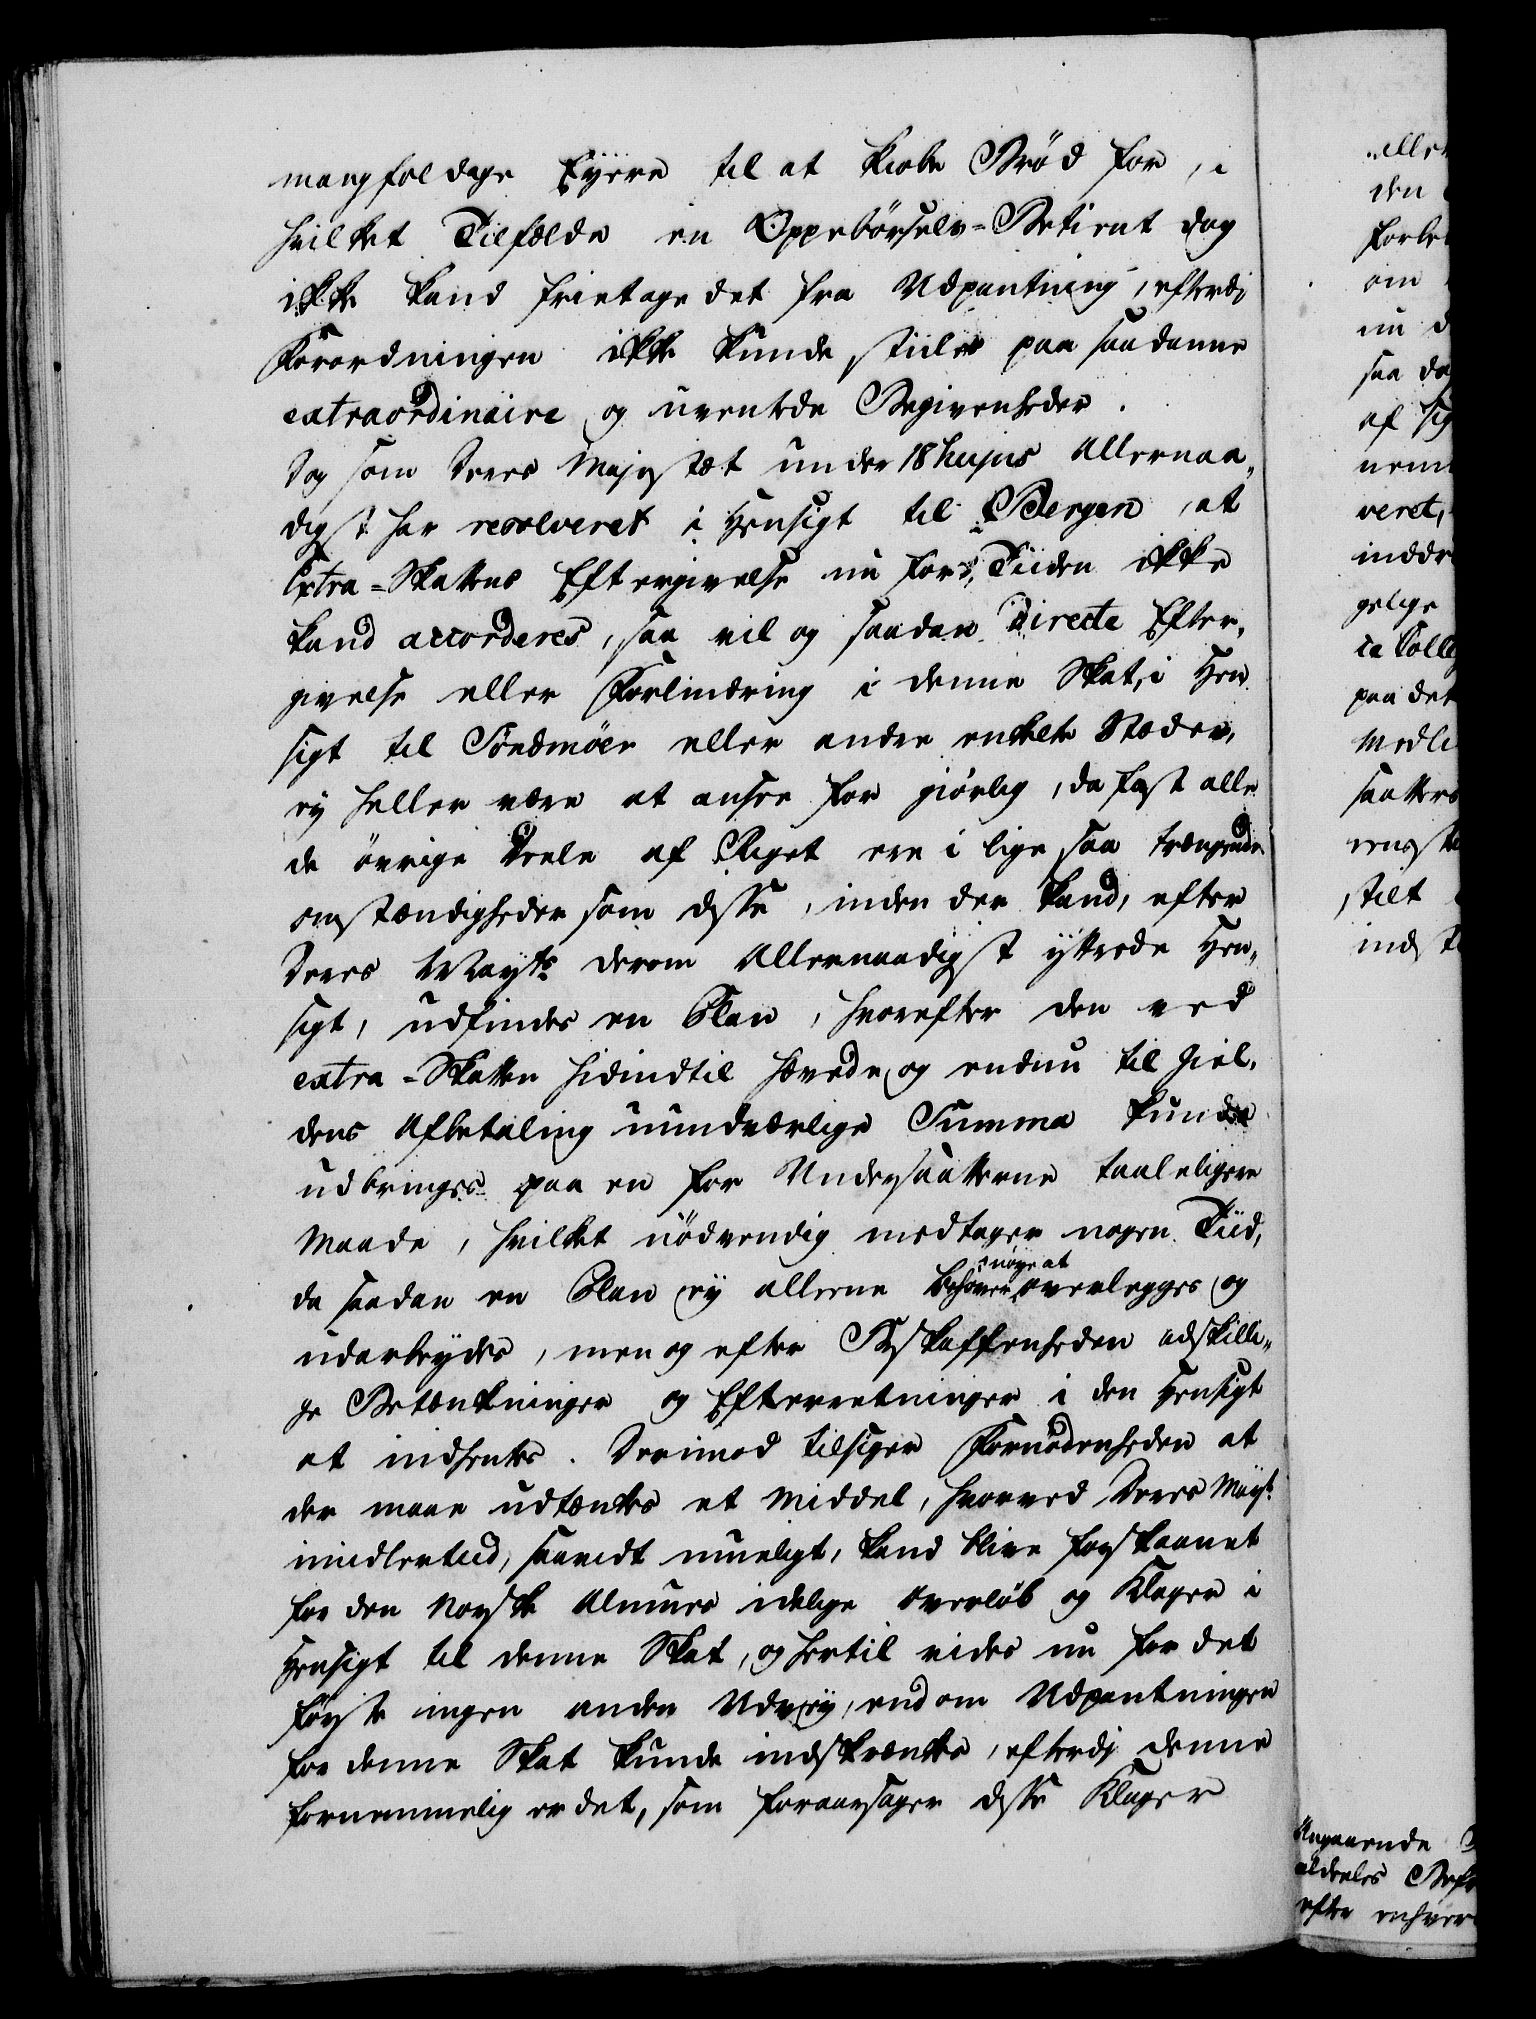 mangfoldage Eyere til at kiøbe Brød for, i
hvilket Tilfælde en Oppebörsels-Betient dog
ikke kand frietage det fra Udpantning, efterdi
Forordningen ikke kunde stiles paa saadanne
extraordinaire og uventede Begivenheder.
Dog som Deres Majestæt under 18 hujus Allernaa-
digst har resolveret i Hensigt til Bergen, at
Extra-Skattens Eftergivelse nu for Tiiden ikke
kand accorderes, saa vil og saadan Directe Efter-
givelse eller Forlindring i denne Skat, i Hen-
sigt til Söndmöer eller andre enkelte Stæder,
ey heller være at ansee for giörlig, da fast alle
de övrige Deele af Riget ere i lige saa trængende
omstændigheder som disse, inden der kand, efter
Deres Mayts. derom Allernaadigst yttrede Hen-
sigt, udfindes en Plan, hvorefter den ved
extra-Skatten hidindtil hævede og endnu til Giel-
dens Afbetaling uundværlige Summa kunde
udbringes paa en for Undersaatterne taaleligere
Maade, hvilket nödvendig medtager nogen Tiid,
da saadan en Plan ey alleene behöver nöye at overlegges og
udarbeydes, men og efter Beskaffenheden adskilli-
ge Betænkninger og Efterretninger i den Hensigt
at indhentes. Derimod tilsiger Fornödenheden at
der maae udtænkes et Middel, hvorved Deres Mayt.
imidlertiid, saavidt mueligt, kand blive forskaanet
for den Norske Almues idelige Overlöb og Klager i
Hensigt til denne Skat, og hertil vides nu for det
förste ingen anden Udvey, end om Udpantningen
for denne Skat kunde indskrænkes, efterdi denne
fornemmelig er det, som foraarsager disse Klager
aller
den
forbe
om
nu d
saa da
af sig
nem
veret,
inddr
gelige
ca Colle
paa det
Medli
saatters
stilt
ind
Angaaende
aldeeles Bef
efter enhver